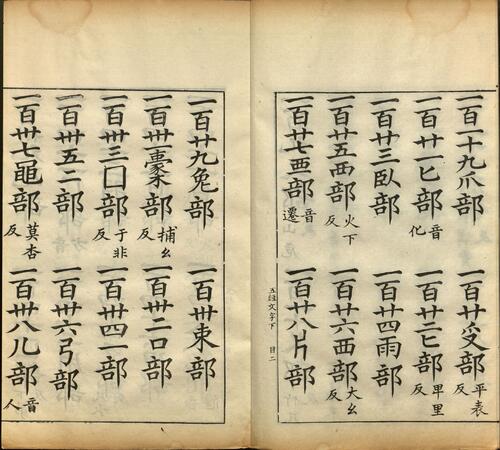 一百十九爪部 一百廿𠬪部平表反
一百廿一匕部音化 一百廿二匕部卑里反
一百廿三臥部 一百廿四雨部
一百廿五西部火下反 一百廿六西部大幺反
一百廿七覀部音遷 一百廿八片部
五經文字下 目二
一百廿九兔部 一百卅東部
一百卅一㯻部捕幺反 一百卅二口部
一百卅三囗部于非反 一百卅四一部
一百卅五二部 一百卅六弓部
一百卅七黽部莫杏反 一百卅八儿部音人